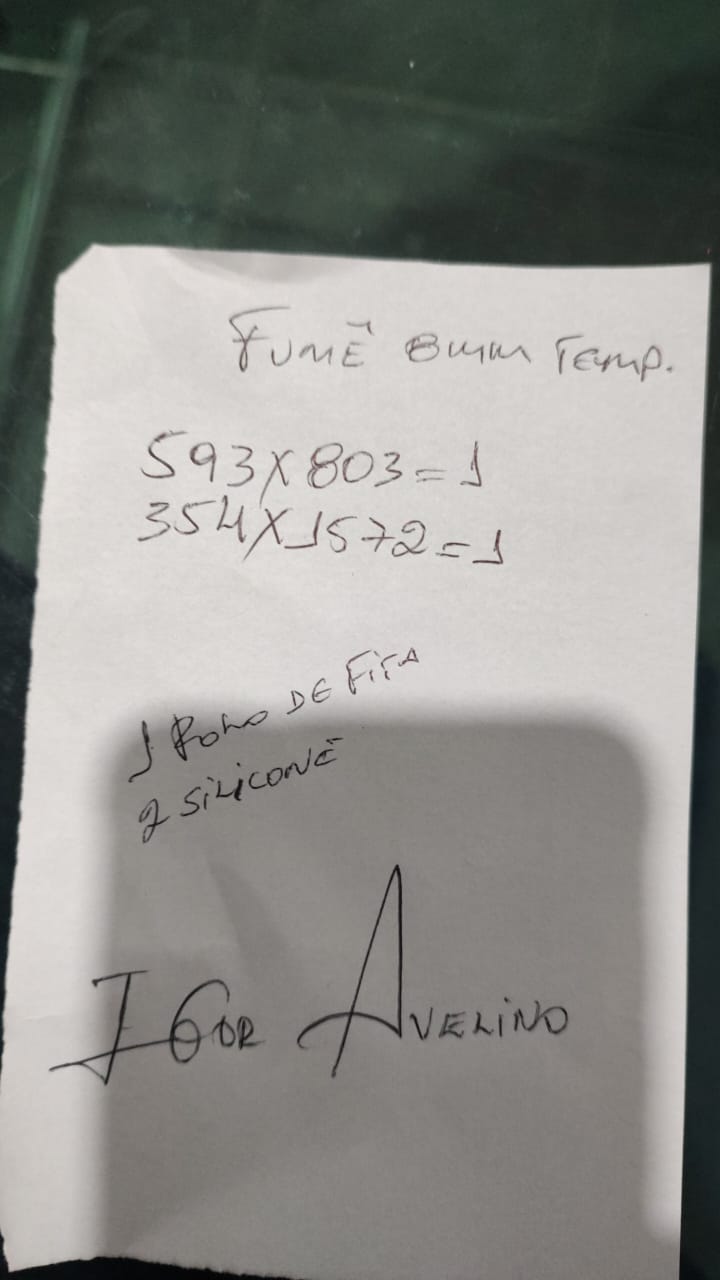 FUMÊ 8mm Temp.
593X803=1
354X1572=1
1 Rolo DE FiTA
2 SiLiCONE
IGOR AVELiNO